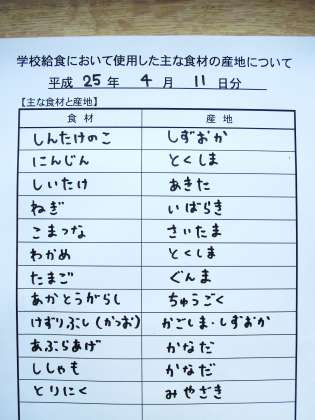 学校給食において使用した主な食材の産地について
平成 25 年 4 月 11 日分
【主な食材と産地】
食材 産地
しんたけのこ しずおか
にんじん とくしま
しいたけ あきた
ねぎ いばらき
こまつな さいたま
わかめ とくしま
たまご ぐんま
あかとうがらし ちゅうごく
けずりぶし(かつお) かごしま・しずおか
あぶらあげ かなだ
ししゃも かなだ
とりにく みやざき